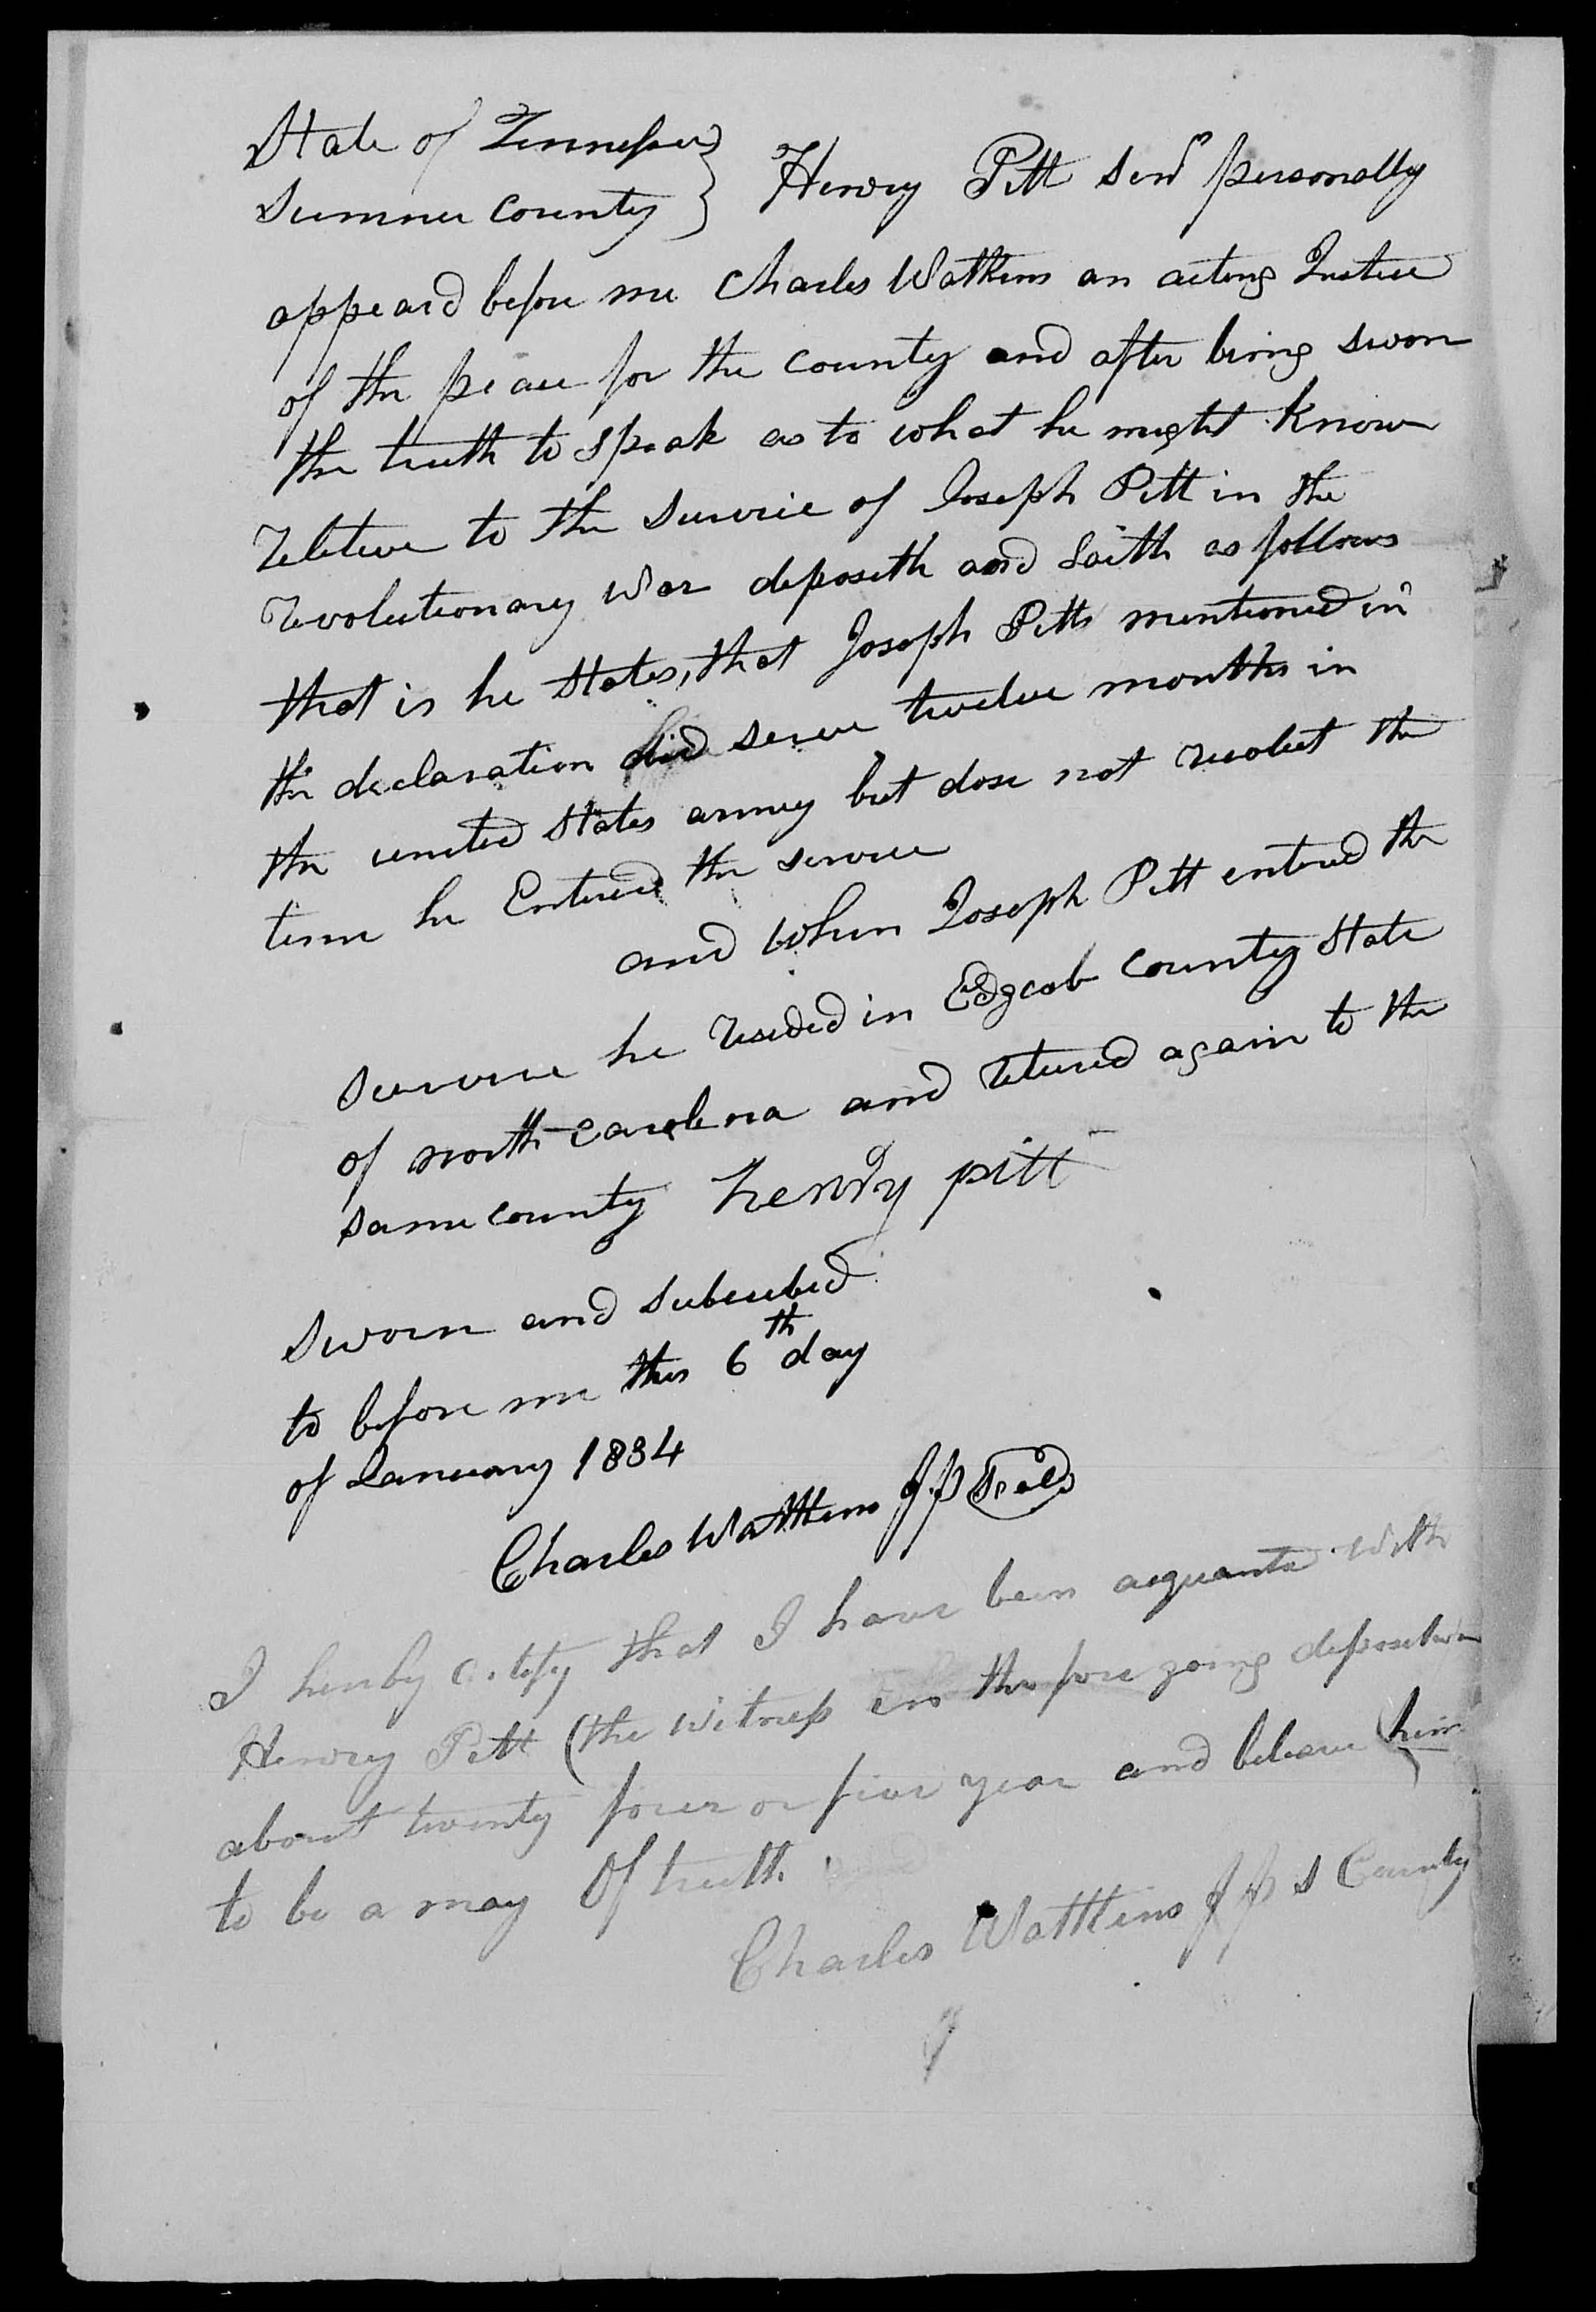 State of Tennessee }
Sumner county } Henry Pitt senr personally
appeard before me Charles Watkins an acting Justice
of the peace for the county and after being sworn
the truth to speak as to what he might know
reletive to the service of Joseph Pitt in the
revolutionary war deposeth and saith as follows
that is he states, that Joseph Pitt mentioned in
the declaration did serve twelve months in
the united states army but dose not recolect the
time he Entered the service
and when Joseph Pitt entered the
service he resided in Edgcob county state
of north carolina and retured again to the
same county henry pitt
sworn and subscribed
to before me this 6th day
of January 1834
Charles Watkins JP Seal
I herby certify that I have been aquanted with
Henry Pitt (the witness in the fore going deposition
about twenty four or five year and beleave him
to be a may Of truth
Charles Watkins JP S County